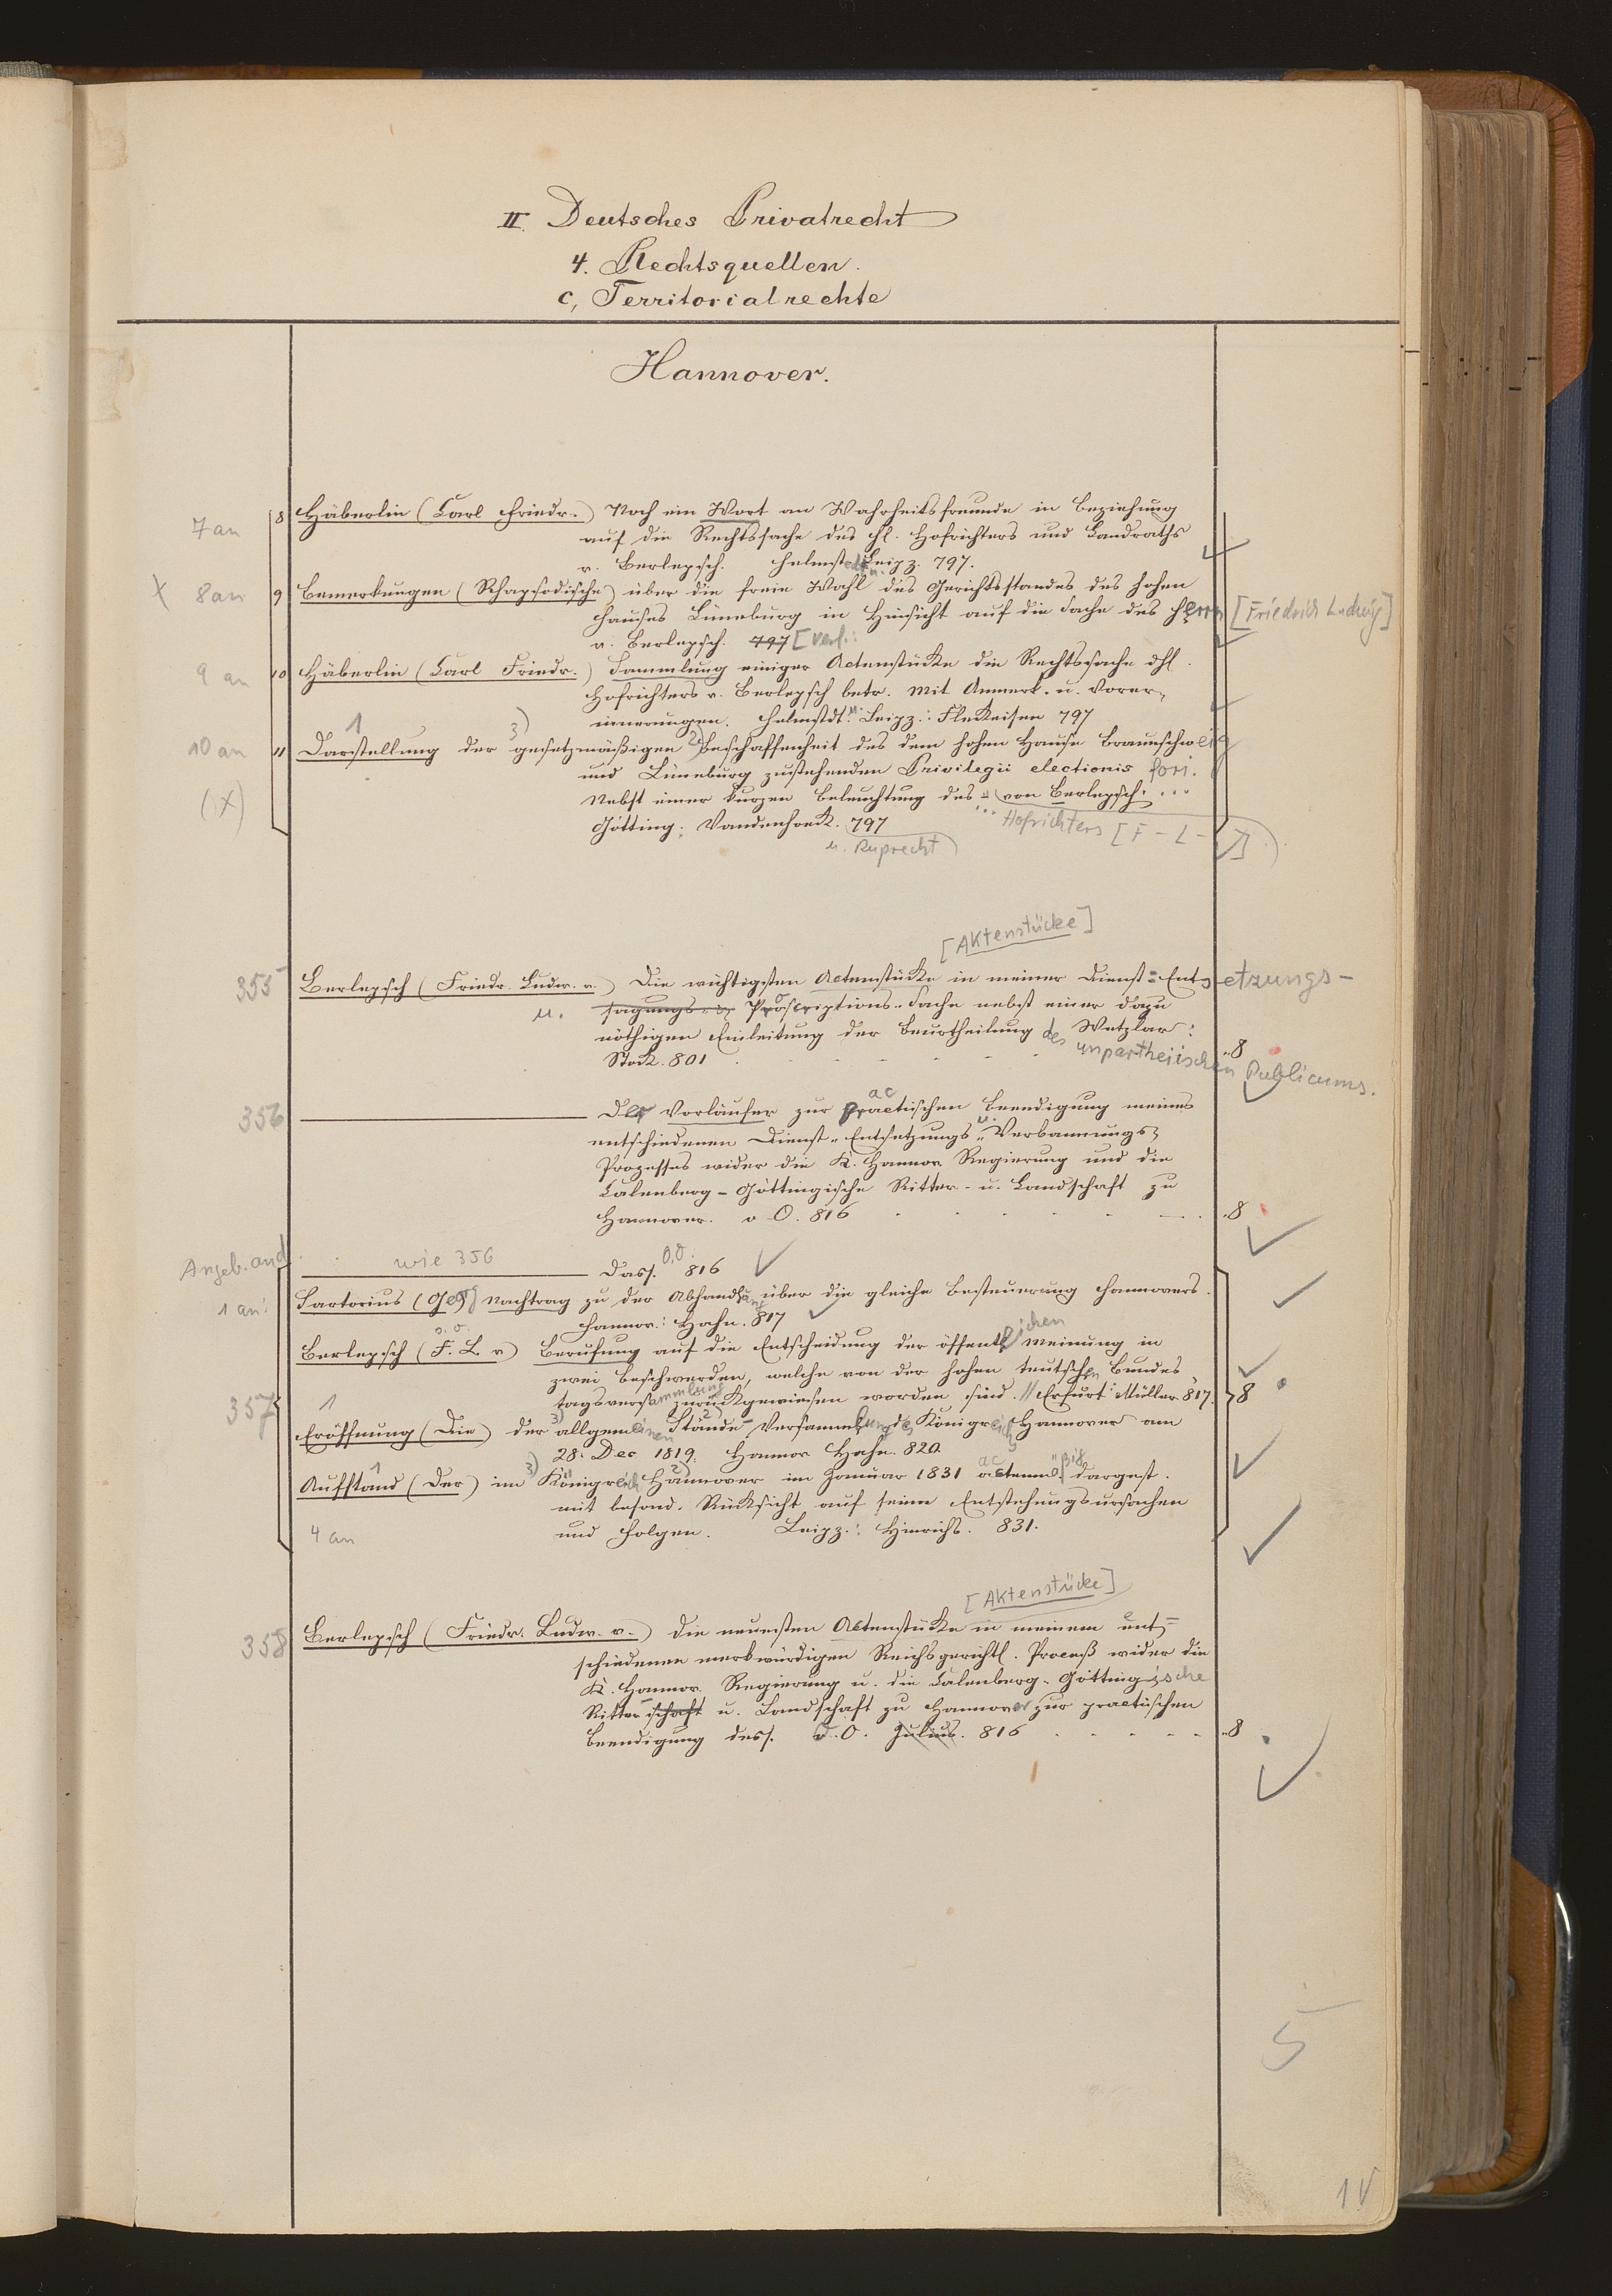 II. Deutsches Privatrecht
4. Rechtsquellen.
c, Territorialrechte
Hannover.
7 an 8 Häberlin (Carl Friedr.) Noch ein Wort an Wahrheitsfreunde in Beziehung
auf die Rechtssache des H. Hofrichters und Landraths
v. Berlepsch. Helmstedt u. Leipz. 797.
X 8 an 9 Bemerkungen (Rhapsodische) über die freie Wahl des Gerichtsstandes des hohen
Hauses Lüneburg in Hinsicht auf die Sache des Herrn [Friedrich Ludwig]
v. Berlepsch. 797 [Verl.:
9 an 10 Häberlin (Carl Friedr.) Sammlung einiger Actenstücke die Rechtssache dH.
Hofrichters v. Berlepsch betr. Mit Anmerk. u. Vorer-
innerungen. Helmstdt. u. Leipz.: Fleckeisen 797
1 3) 2)
10 an 11 Darstellung der gesetzmäßigen Beschaffenheit des dem hohen Hause Braunschweig
und Lüneburg zustehenden Privilegii electionis fori.
(X) Nebst einer kurzen Beleuchtung des von Berlepsch. ...
... Hofrichters [F - L - ]
Götting: Vandenhoeck. 797
u. Ruprecht
[Aktenstücke]
355 Berlepsch (Friedr. Ludw. v.) Die wichtigsten Actenstücke in meiner Dienst=Entsetzungs-
u. sagungs- Proscriptions-Sache nebst einer dazu
nöthigen Einleitung der Beurtheilung des unpartheiischen Publicums.
Wetzlar:
Stock. 801 8
356 Der Vorläufer zur practischen Beendigung meines
entschiedenen Dienst-Entsetzungs u. Verbannungs-
Prozesses wider die K. Hannov. Regierung und die
Calenberg-Göttingische Ritter- u. Landschaft zu
Hannover. o. O. 816 8
Angeb. and wie 356 Dass. O.O. 816
1 an: Sartorius (Geo) Nachtrag zu der Abhandlung über die gleiche Besteuerung Hannovers.
Hannov.: Hahn. 817
Berlepsch (F. L. v) Berufung auf die Entscheidung der öffentlichen Meinung in
zwei Beschwerden, welche von der hohen teutschen Bundes
tagsversammlung zurückgewiesen worden sind. // Erfurt: Müller 817. 8
357 Eröffnung (Die) der allgemeinen Stände-Versammlung des Königreichs Hannover am
28. Dec 1819. Hannov. Hahn. 820.
Aufstand (Der) im Königreich Hannover im Januar 1831 actenmäßig dargest.
mit besond. Rücksicht auf seine Entstehungsursachen
4 an und Folgen. Leipz.: Hinrichs. 831.
[Aktenstücke]
358 Berlepsch (Friedr. Ludw. v.) Die neuesten Actenstücke in meinem ent-
schiedenen merkwürdigen Reichsgerichtl. Proceß wider die
K. Hannov. Regierung u. die Calenberg-Göttingische
Ritterschaft u. Landschaft zu Hannover zur practischen
Beendigung dess. O. O. Julius. 816 8
5